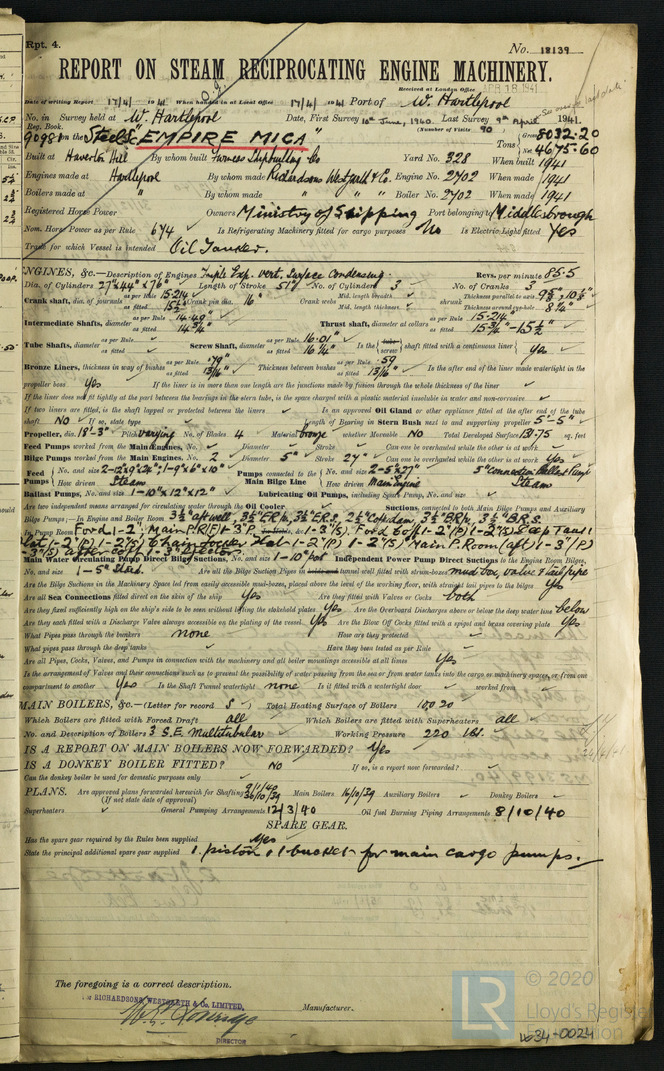 Rpt. 4.
No. 18139
REPORT ON STEAM RECIPROCATING ENGINE MACHINERY.
Received at London Office APR 18 1941
Date of writing Report 17/4/1941 When handed in at Local Office 17/4/41 Port of W. Hartlepool
No. in Survey held at W. Hartlepool Date, First Survey 10th June, 1940 Last Survey 9th April 1941.
Reg. Book. (Number of Visits 90)
90981 on the Steel Sc "EMPIRE MICA" Tons Gross 8032.20 Net 4675.60
Built at Haverton Hill By whom built Furness Shipbuilding Co Yard No. 328 When built 1941
Engines made at Hartlepool By whom made Richardsons Westgarth & Co. Engine No. 2702 When made 1941
Boilers made at " By whom made " Boiler No. 2702 When made 1941
Registered Horse Power Owners Ministry of Shipping Port belonging to Middlesbrough
Nom. Horse Power as per Rule 674 Is Refrigerating Machinery fitted for cargo purposes No Is Electric Light fitted Yes
Trade for which Vessel is intended Oil Tanker.
ENGINES, &c.—Description of Engines Triple Exp. vert. Surface Condensing. Revs. per minute 85.5
Dia. of Cylinders 27" x 44" x 76" Length of Stroke 51" No. of Cylinders 3 No. of Cranks 3
Crank shaft, dia. of journals as per Rule 15.214 as fitted 15½ Crank pin dia. 16" Crank webs Mid. length breadth Mid. length thickness shrunk Thickness parallel to axis 9⅝ x 10⅛" Thickness around eye-hole 8¼"
Intermediate Shafts, diameter as per Rule 14.49" as fitted 14¾" Thrust shaft, diameter at collars as per Rule 15.214" as fitted 15¾" - 15½"
Tube Shafts, diameter as per Rule as fitted Screw Shaft, diameter as per Rule 16.01" as fitted 16¼" Is the tube screw shaft fitted with a continuous liner yes
Bronze Liners, thickness in way of bushes as per Rule .79" as fitted 13/16" Thickness between bushes as per Rule .59 as fitted 13/16" Is the after end of the liner made watertight in the
propeller boss yes If the liner is in more than one length are the junctions made by fusion through the whole thickness of the liner
If the liner does not fit tightly at the part between the bearings in the stern tube, is the space charged with a plastic material insoluble in water and non-corrosive
If two liners are fitted, is the shaft lapped or protected between the liners Is an approved Oil Gland or other appliance fitted at the after end of the tube
shaft NO If so, state type Length of Bearing in Stern Bush next to and supporting propeller 5'-5"
Propeller, dia. 18'-3" Pitch varying No. of Blades 4 Material bronze whether Moveable NO Total Developed Surface 131.75 sq. feet
Feed Pumps worked from the Main Engines, No. Diameter Stroke Can one be overhauled while the other is at work
Bilge Pumps worked from the Main Engines, No. 2 Diameter 5" Stroke 27" Can one be overhauled while the other is at work yes
Feed Pumps No. and size 2-12x9"x24"; 1-9"x6"x10" How driven Steam Pumps connected to the Main Bilge Line No. and size 2-5"x27" How driven Main Engine 5" connection Ballast Pump Steam
Ballast Pumps, No. and size 1-10"x12"x12" Lubricating Oil Pumps, including Spare Pump, No. and size
Are two independent means arranged for circulating water through the Oil Cooler Suctions, connected to both Main Bilge Pumps and Auxiliary
Bilge Pumps;—In Engine and Boiler Room 3½" aft well 3½" E.R. 3½" E.R.S. 2½" Cofferdam, 3½" B.R.P. 3½" B.R.S.
Main Water Circulating Pump Direct Bilge Suctions, No. and size 1-10" bot Independent Power Pump Direct Suctions to the Engine Room Bilges,
No. and size 1-5" Stbd. Are all the Bilge Suction Pipes in tunnel well fitted with strum-boxes mud box, valve & tail pipe
Are the Bilge Suctions in the Machinery Space led from easily accessible mud-boxes, placed above the level of the working floor, with straight tail pipes to the bilges Yes
Are all Sea Connections fitted direct on the skin of the ship Yes Are they fitted with Valves or Cocks both
Are they fixed sufficiently high on the ship's side to be seen without lifting the stokehold plates yes Are the Overboard Discharges above or below the deep water line below
Are they each fitted with a Discharge Valve always accessible on the plating of the vessel Yes Are the Blow Off Cocks fitted with a spigot and brass covering plate Yes
What Pipes pass through the bunkers none How are they protected
What pipes pass through the deep tanks Have they been tested as per Rule
Are all Pipes, Cocks, Valves, and Pumps in connection with the machinery and all boiler mountings accessible at all times Yes
Is the arrangement of Valves and their connections such as to prevent the possibility of water passing from the sea or from water tanks into the cargo or machinery spaces, or from one
compartment to another Yes Is the Shaft Tunnel watertight none Is it fitted with a watertight door worked from
MAIN BOILERS, &c.—(Letter for record S) Total Heating Surface of Boilers 10020
Which Boilers are fitted with Forced Draft all Which Boilers are fitted with Superheaters all
No. and Description of Boilers 3 S.E. Multitubular Working Pressure 220 lbs.
IS A REPORT ON MAIN BOILERS NOW FORWARDED? Yes
IS A DONKEY BOILER FITTED? NO If so, is a report now forwarded?
Can the donkey boiler be used for domestic purposes only
PLANS. Are approved plans forwarded herewith for Shafting 9/1/40 26/10/39 Main Boilers 16/10/39 Auxiliary Boilers Donkey Boilers
(If not state date of approval)
Superheaters General Pumping Arrangements 12/3/40 Oil fuel Burning Piping Arrangements 8/10/40
SPARE GEAR.
Has the spare gear required by the Rules been supplied Yes
State the principal additional spare gear supplied 1. piston & 1 bucket for main cargo pumps.
The foregoing is a correct description.
RICHARDSONS, WESTGARTH & CO. LIMITED,
Manufacturer.
DIRECTOR
LR
© 2020
Lloyd's Register
Foundation
W634-0024